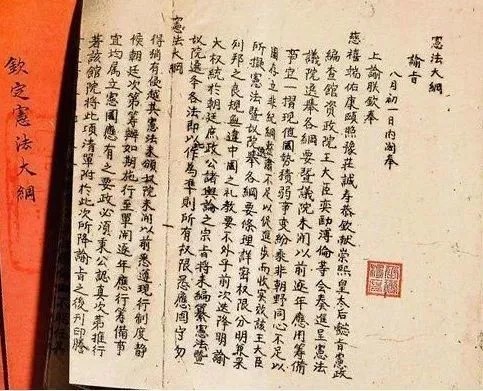 憲法大綱
諭旨
八月初一日内閣奉
上諭朕欽奉
慈禧端佑康頤照豫莊誠壽恭欽獻崇熙皇太后懿旨憲政
編查館資政院王大臣奕劻溥倫等會奏進呈憲法
議院選舉各綱要暨議院未開以前逐年應籌備
事宜一摺現值國勢積弱事變紛乘非朝野同心不足以
圖存立非紀綱整肅不足以促進步而收實效該王大臣
所擬憲法暨議院選舉各綱要條理詳密權限分明兼采
列邦之良規無違中國之禮教要不外乎前次迭降明諭
大權統於朝廷庶政公諸輿論之宗旨將來編纂憲法暨
議院選舉各法即以作為準則所有權限悉應固守勿
憲法大綱
得稍有侵越其憲法未頒議院未開以前悉遵現行制度靜
候朝廷次第籌辦如期施行至單開逐年應行籌備事
宜均屬立憲國應有之要政必須秉公認真次第推行
著該館院將此項清單附於此次所降諭旨之後刊印謄
欽定憲法大綱